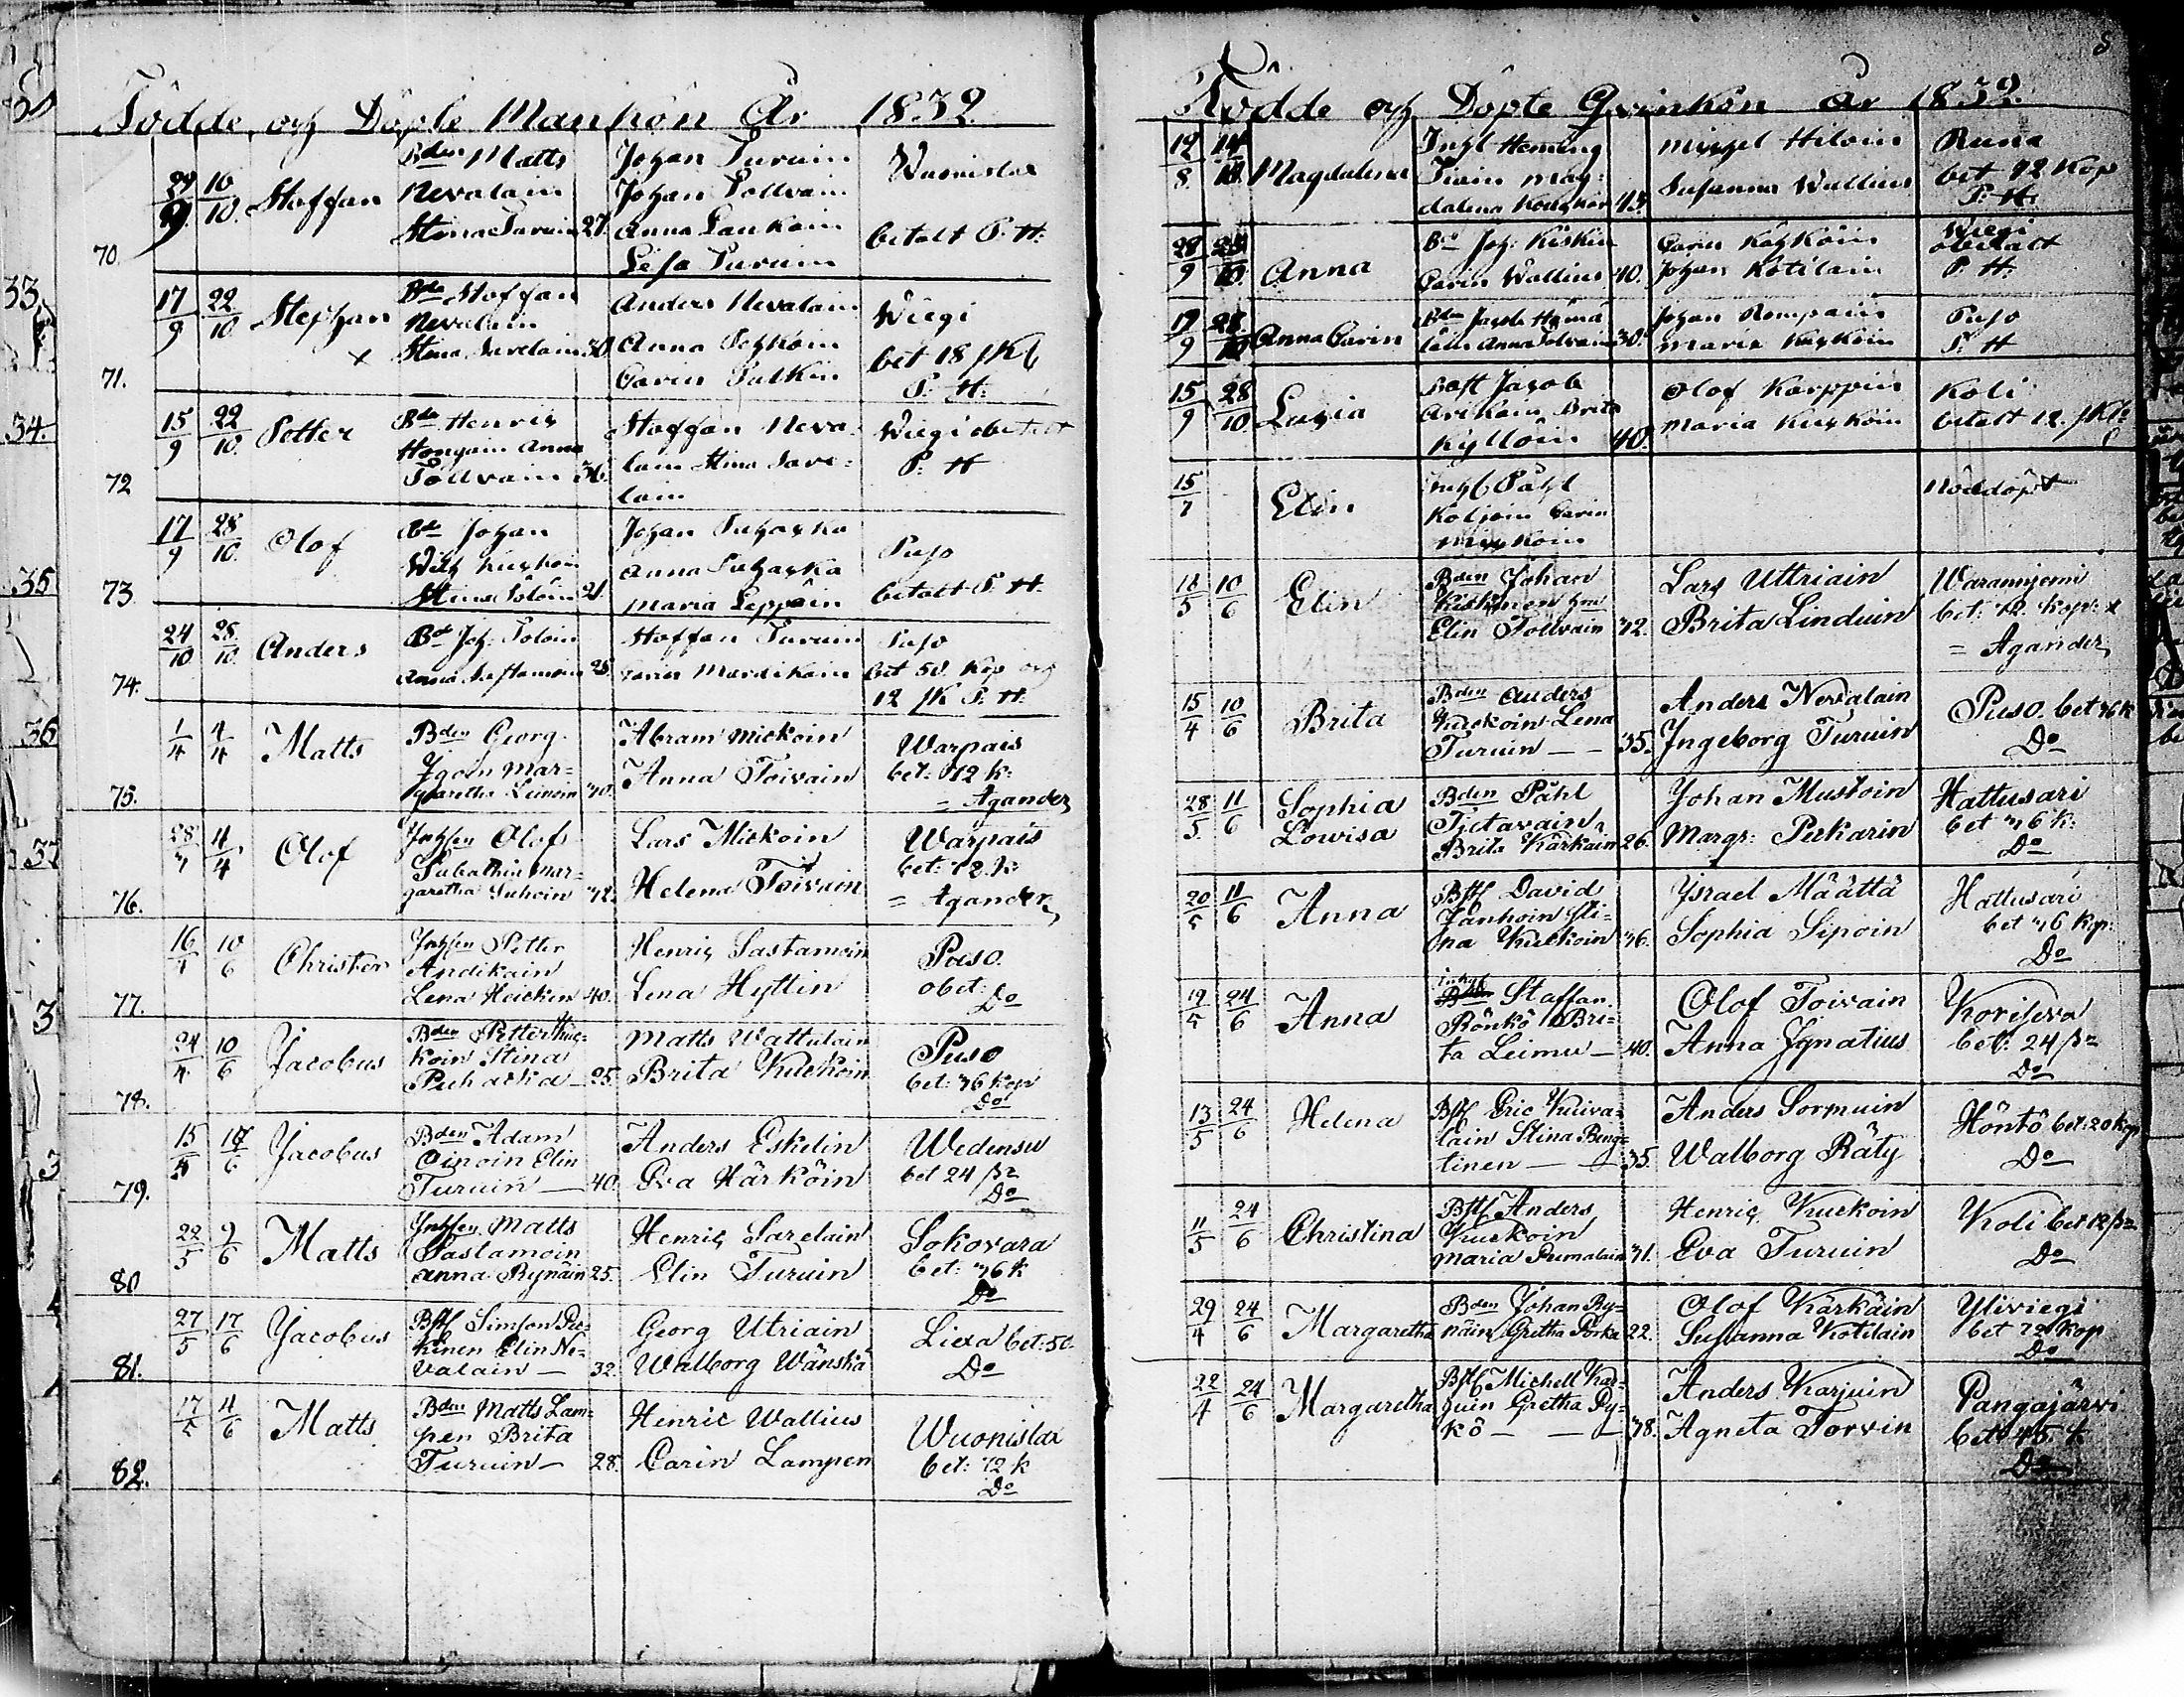 Födde och Döpte Mankön År 1832
70. 29/9 10/10 Staffan
Bden Matts
Nevalain
Stina Turuin 27.
Johan Turuin
Johan Tollvain
Anna Laukain
Lisa Turuin
Wuonislax
betalt P. H.
71. 17/9 22/10 Stephan
Bde Staffan
Nevalain
Stina Savelain 30
Anders Nevalain
Anna
Carin Pulkin
Wiegi
bet 18
P. H.
72 15/9 22/10 Petter
Bde Henric
Anna
Tollvain 36.
Staffan Neva-
lain Stina Save-
lain
Wiegi obetalt
P. H
73 17/9 28/10 Olof
Bde Johan
Stina 21.
Johan Puhacka
Anna Puhacka
Maria Leppäin
Puso
betalt P. H.
74. 24/10 28/10 Anders
Bde Joh: Toloin
Anna Sastamoin 25.
Staffan Turuin
Puso
bet 50 Kop och
12 P. H.
75. 1/4 4/4 Matts
Bden Georg
Igoin Mar=
garetha Leinoin 40.
Abram Mickoin
Anna Toivain
Warpais
bet: 72 k:
= Agander
76. 4/4 Olof
Inhsen Olof
Mar=
garetha Suhoin 42.
Lars Mickoin
Helena Toivain
Warpais
bet: 72. k
= Agander
77. 16/4 10/6 Christer
Inhsen Petter
Andikain
Lena Heickin 40.
Henric Sastamoin
Lena Hyttin
Puso.
obet:
Do
78. 24/4 10/6 Jacobus
Bden Petter Kuc=
koin Stina
Puhacka — 25.
Matts Wattulain
Brita Kuckoin
Puso
bet: 76 kop
Do
79. 15/4 17/6 Jacobus
Bden Adam
Oinoin Elin
Turuin — 40.
Anders Eskelin
Eva Härköin
Wedensu
bet 24
Do
80 22/5 9/6 Matts
Inhsen Matts
Sastamoin
Anna Rynäin 25.
Henric Sarelain
Elin Turuin
Sokovara
bet: 76 k
Do
81. 27/5 17/6 Jacobus
Bstf Simson Pie=
kinen Elin Ne=
valain — 32.
Georg Utriain
Walborg Wänskä
Liexa bet: 50.
Do
82. 17/5 4/6 Matts
Bden Matts Lam=
pen Brita
Turuin — 28.
Henric Wallius
Carin Lampen
Wuonislax
bet: 72 k
Do
Födde och Döpte Qvinkön År 1832
12/8 14/10 Magdalena
Inhl Heming
Mag-
dalena 43.
Michel Hiloin
Susanna Wallius
Runa
bet 72 Kop
P. H.
28/9 10 Anna
Bde Joh: Kiskin
Carin Wallius 40.
Johan Kotilain
Wiegi
obetalt
P. H.
17/9 Anna Carin
Bden Jacob
Anna Tolvain 30.
Johan Rompain
Maria Kuckoin
Puso
P. H
15/9 28/10 Lucia
Bstf Jacob
Brita
Kyllöin 40.
Olof Korppin
Maria Kuckoin
Koli
betalt 12.
15/7 Elin
Inhl Påhl
Koljoin Carin
Mickoin
Nöddöpt
18/5 10/6 Elin
Bden Johan
Kiskinen
Elin Tollvain 42.
Lars Uttriain
Brita Linduin
Waraniemi
bet: 72. kop:
= Agander
15/4 10/6 Brita
Bden Anders
Kuckoin Lena
Turuin — — 35.
Anders Nevalain
Ingeborg Turuin
Puso. bet 76 k
Do
28/5 11/6 Sophia
Lowisa
Bden Påhl
Tietavain
Brita Kärkain 26.
Johan Mustoin
Margr: Pekarin
Hattusari
bet 76 k:
Do
20/5 11/6 Anna
Bstf David
Janhoin Sti=
na Kuckoin 36.
Ysrael Määttä
Sophia Sipoin
Hattusari
bet 76 kop:
Do
19/5 24/6 Anna
inhys Staffan
Rönkö Bri=
ta Leimu — 40.
Olof Toivain
Anna Ignatius
Korisexa
bet: 24
Do
13/5 24/6 Helena
Bstf Eric Kuiva=
lain Stina Beng=
tinen — — 35.
Anders Sormuin
Walborg Räty
Höntö bet: 20 kop
Do
11/5 24/6 Christina
Bstf Anders
Kuckoin
Maria Pumalain 41.
Henric Kuckoin
Eva Turuin
Koli bet 12
Do
29/4 24/6 Margaretha
Bden Johan Ry=
näin Gretha Porka 22.
Olof Kärkäin
Susanna Kotilain
Yliviegi
bet 72 Kop
Do
22/4 24/6 Margaretha
Bstf Michell Kar=
juin Gretha Py=
kö — — — 38.
Anders Karjuin
Agneta Torvin
Pangajärvi
bet: 45. k
Do